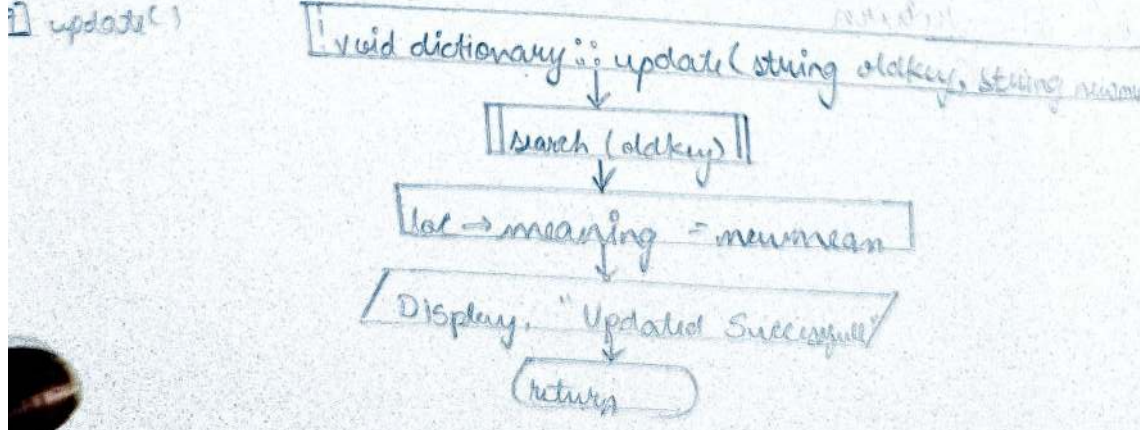 update()
void dictionary :: update(string oldkey, string
search (oldkey)
loc → meaning = newmean
Display, "Updated Successfull"
return